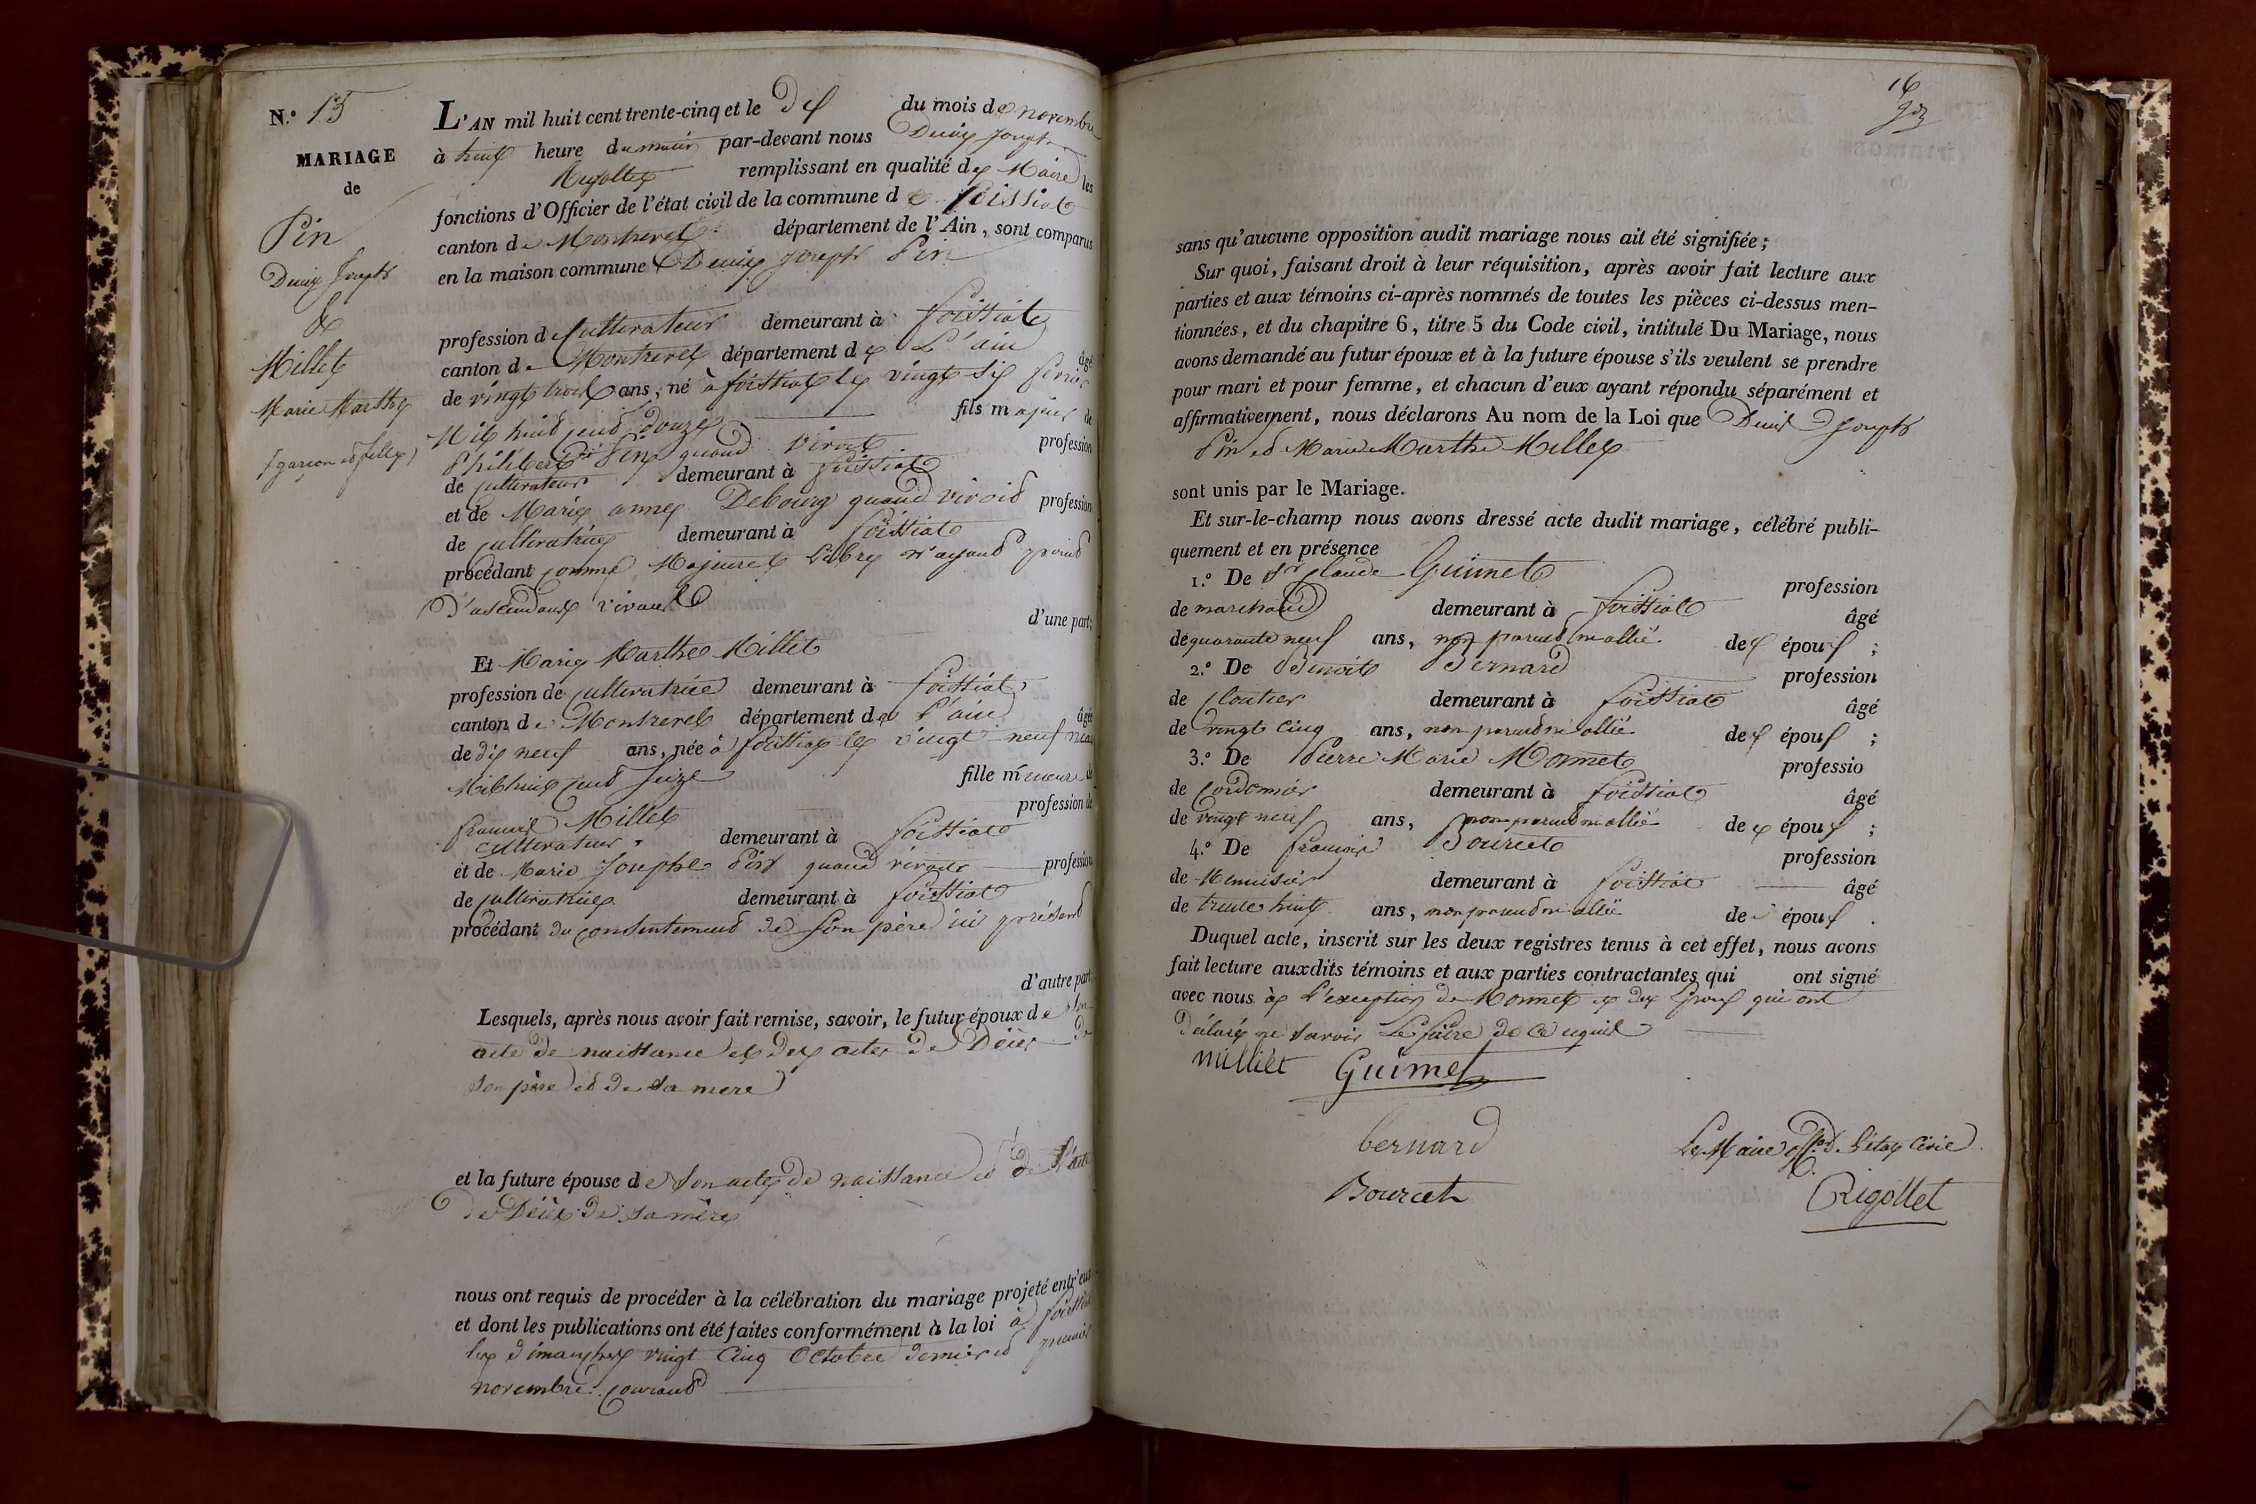 N.° 15
MARIAGE
de
Pin
Denis Joseph
&
Millet
Marie Marthe
(garcon et fille)
L'AN mil huit cent trente-cinq et le dix du mois de novembre
à huit heure du matin par-devant nous Denis Joseph
Rigollet remplissant en qualité de Maire les
fonctions d'Officier de l'état civil de la commune de foissiat
canton de Montrevel département de l'Ain, sont comparus
en la maison commune Denis Joseph Pin
profession de cultivateur demeurant à foissiat
canton de Montrevel département de L'ain âgé
de vingt trois ans, né à foissiat le vingt six fevrier
Mil huit cent douze fils majeur de
Philibert Pin quand vivoit profession
de cultivateur demeurant à foissiat
et de Marie anne Debourg quand vivoit profession
de cultivatrice demeurant à foissiat
procédant comme Majeur et Libre n'ayant point
d'ascendant vivant
d'une part;
Et Marie Marthe Millet
profession de cultivatrice demeurant à foissiat
canton de Montrevel département de L'ain âgée
de dix neuf ans, née à foissiat le vingt neuf mai
Mil huit cent seize fille mineure de
francois Millet profession de
cultivateur demeurant à foissiat
et de Marie Josephe Pin quand vivoit profession
de cultivatrice demeurant à foissiat
procédant du consentement de son père ici présent
d'autre part
Lesquels, après nous avoir fait remise, savoir, le futur époux de son
acte de naissance et des actes de Décès de
son père et de sa mere
et la future épouse de son acte de naissance et de l'acte
de Décès de sa mère
nous ont requis de procéder à la célébration du mariage projeté entr'eux
et dont les publications ont été faites conformément à la loi à foissiat
les dimanches vingt cinq Octobre dernier et premier
novembre courant
16
sans qu'aucune opposition audit mariage nous ait été signifiée;
Sur quoi, faisant droit à leur réquisition, après avoir fait lecture aux
parties et aux témoins ci-après nommés de toutes les pièces ci-dessus men-
tionnées, et du chapitre 6, titre 5 du Code civil, intitulé Du Mariage, nous
avons demandé au futur époux et à la future épouse s'ils veulent se prendre
pour mari et pour femme, et chacun d'eux ayant répondu séparément et
affirmativement, nous déclarons Au nom de la Loi que Denis Joseph
Pin et Marie Marthe Millet
sont unis par le Mariage.
Et sur-le-champ nous avons dressé acte dudit mariage, célébré publi-
quement et en présence
1.° De Sr Claude Guimet profession
de marchand demeurant à foissiat âgé
de quarante neuf ans, non parent ni allié des époux;
2.° De Benoit Bernard profession
de cloutier demeurant à foissiat âgé
de vingt cinq ans, non parent ni allié des époux;
3.° De Pierre Marie Monnet professio
de cordonnier demeurant à foissiat âgé
de vingt neuf ans, non parent ni allié des époux;
4.° De francois Bourcet profession
de Menuisier demeurant à foissiat âgé
de trente huit ans, non parent ni allié des époux.
Duquel acte, inscrit sur les deux registres tenus à cet effet, nous avons
fait lecture auxdits témoins et aux parties contractantes qui ont signé
avec nous à L'exception de Monnet et des Epoux qui ont
déclaré ne savoir Le faire de ce requis
Milliet Guimet
bernard
Le Maire off. de L'état Civil
Bourcet
Rigollet